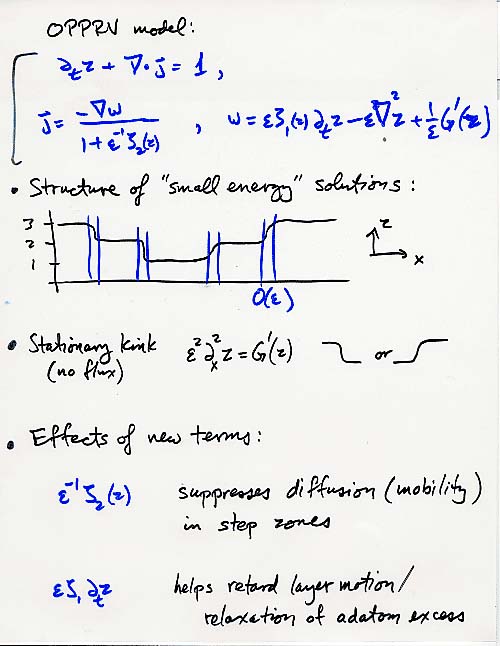 OPPRV model:
∂ₜz + ∇·j⃗ = 1 ,
j⃗ = -∇w / (1 + ε⁻¹ζ₂(z)) , w = εζ₁(z)∂ₜz − ε∇²z + (1/ε)G'(z)
• Structure of "small energy" solutions:
3
2
1
z
x
O(ε)
• Stationary kink ε²∂ₓ²z = G'(z) or
(no flux)
• Effects of new terms:
ε⁻¹ζ₂(z) suppresses diffusion (mobility)
in step zones
εζ₁∂ₜz helps retard layer motion/
relaxation of adatom excess